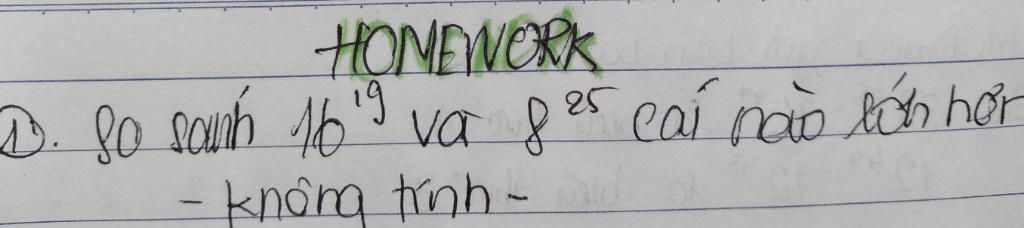 HOMEWORK
1). So sánh 16^19 và 8^25 cái nào lớn hơn
- không tính -